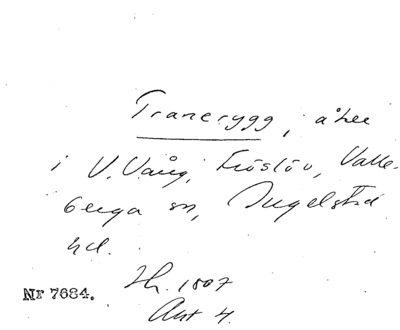 Tranerygg, åker
i V. Vång, Fröslöv, Valle-
berga sn, Ingelstad
hd.
Nr 7684.
Hh. 1807
Akt 4.